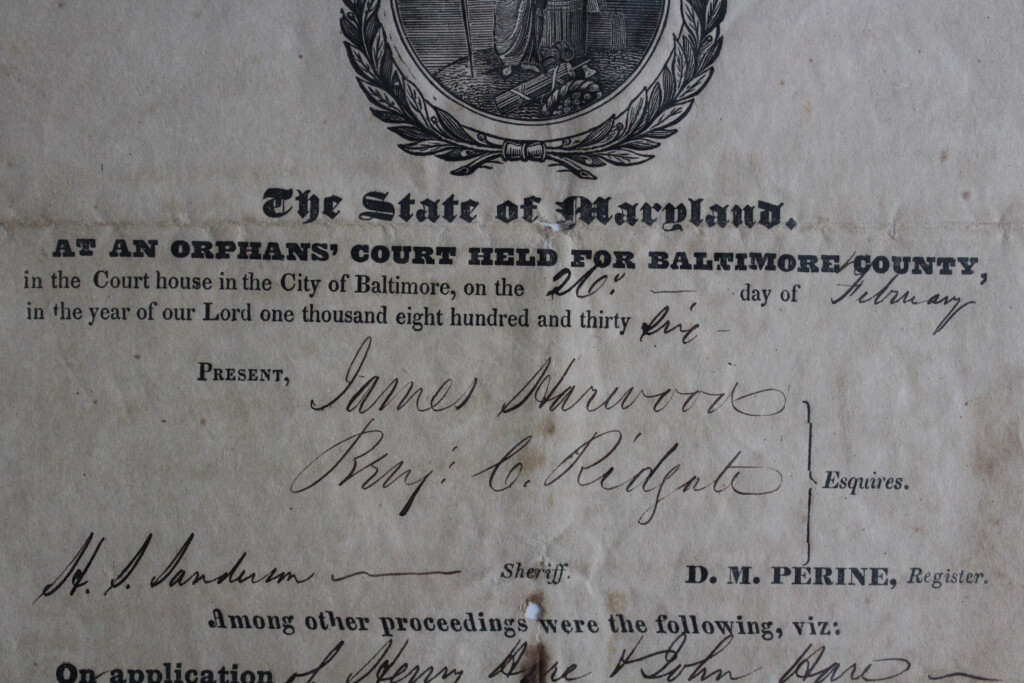 The State of Maryland.
AT AN ORPHANS' COURT HELD FOR BALTIMORE COUNTY,
in the Court house in the City of Baltimore, on the 26. — day of February
in the year of our Lord one thousand eight hundred and thirty six –
PRESENT, James Harwood
Benj. C. Ridgate
Esquires.
H. S. Sanderson — Sheriff. D. M. PERINE, Register.
Among other proceedings were the following, viz:
On application of Henry Hare & John Hare —